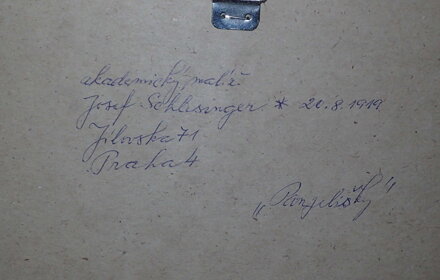 akademický malíř
Josef Schlesinger * 20.8.1919
Jílovska 71
Praha 4